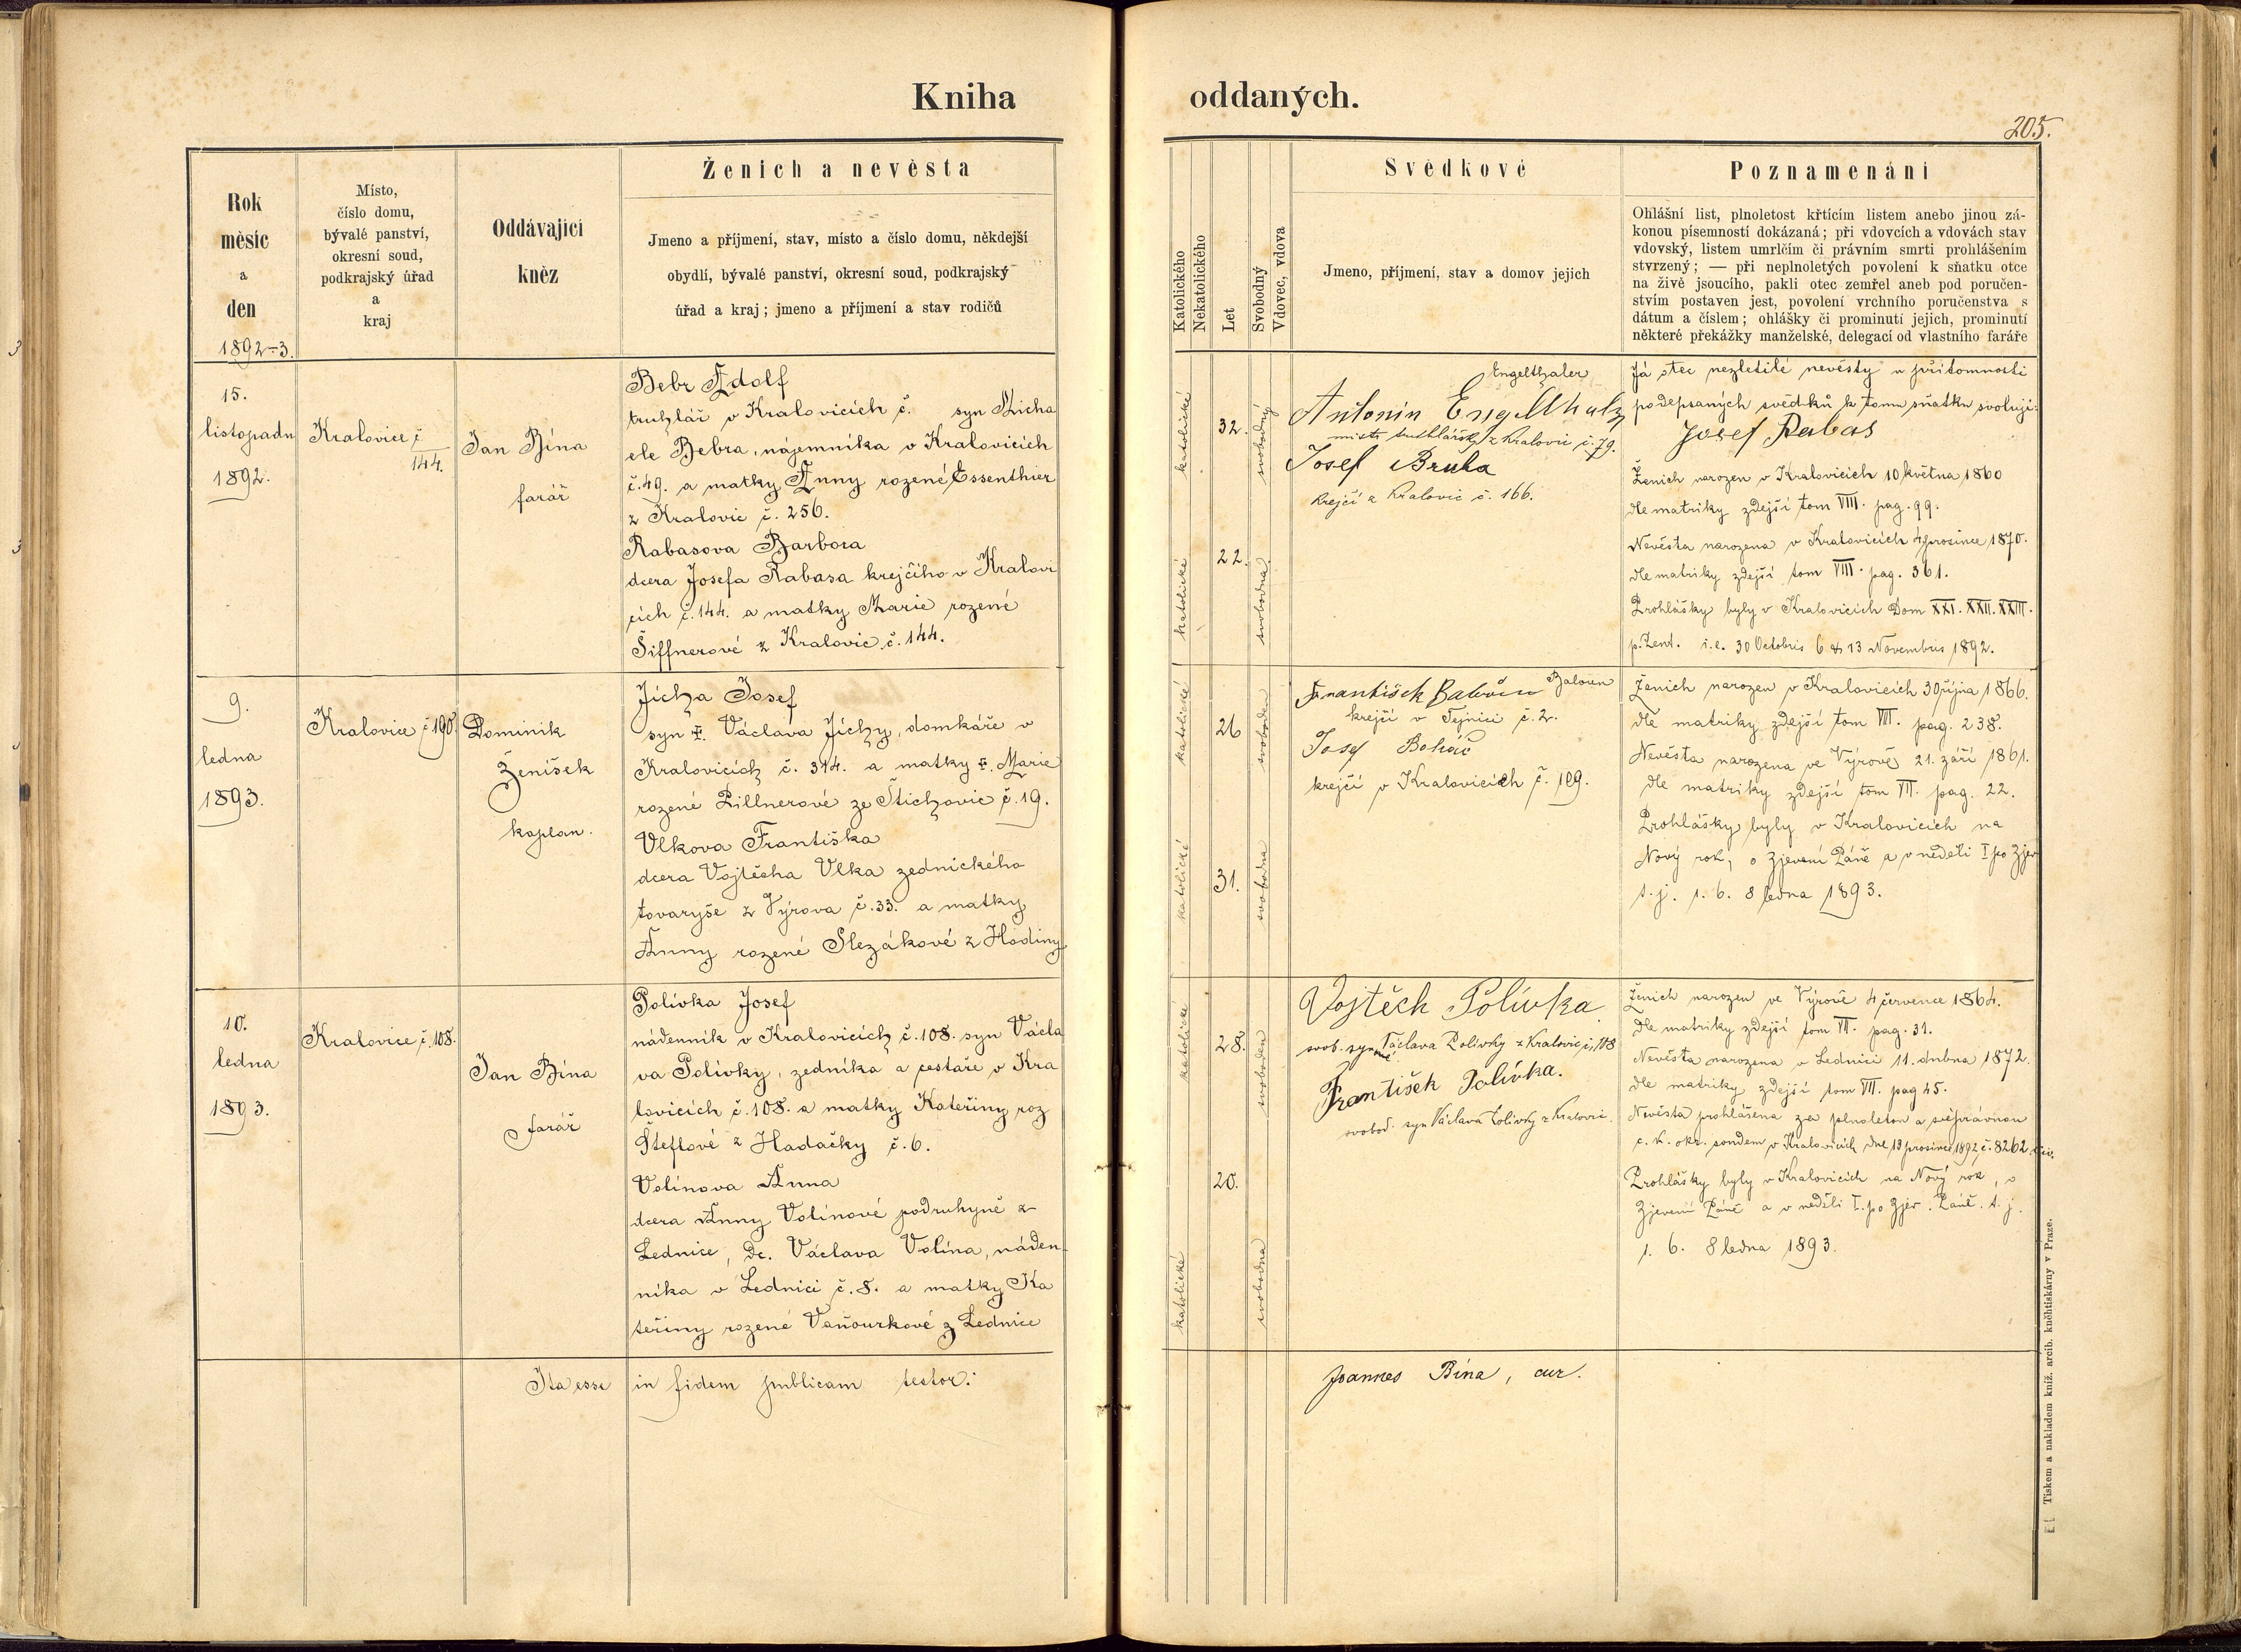 Kniha oddaných.
205.
Rok
měsíc
a
den
1892-3.
Místo,
číslo domu,
bývalé panství,
okresní soud,
podkrajský úřad
a
kraj
Oddávající
kněz
Ženich a nevěsta
Jmeno a příjmení, stav, místo a číslo domu, někdejší
obydlí, bývalé panství, okresní soud, podkrajský
úřad a kraj; jmeno a příjmení a stav rodičů
Katolického
Nekatolického
Let
Svobodný
Vdovec, vdova
Svědkové
Jmeno, příjmení, stav a domov jejich
Poznamenání
Ohlášní list, plnoletost křtícím listem anebo jinou zá-
konou písemností dokázaná; při vdovcích a vdovách stav
vdovský, listem umrlčím či právním smrti prohlášením
stvrzený; — při neplnoletých povolení k sňatku otce
na živě jsoucího, pakli otec zemřel aneb pod poručen-
stvím postaven jest, povolení vrchního poručenstva s
dátum a číslem; ohlášky či prominutí jejich, prominutí
některé překážky manželské, delegací od vlastního faráře
15.
listopadu
1892.
Kralovice č
144.
Jan Bína
farář
Bebr Adolf
truhlář v Kralovicích č. syn Micha
ele Bebra, nájemníka v Kralovicích
č. 49. a matky Anny rozené Essenthier
z Kralovic č. 256.
Rabasova Barbora
dcera Josefa Rabasa krejčího v Kralovi
cích č. 144. a matky Marie rozené
Šiffnerové z Kralovic č. 144.
katolické
32.
svobodný
katolické
22.
svobodná
Engelthaler
Antonín Engelthaler
mistr truhlářský z Kralovic č. 79.
Josef Bruha
krejčí z Kralovic č. 166.
Já otec nezletilé nevěsty u přítomnosti
podepsaných svědků k tomu sňatku svoluji:
Josef Rabas
Ženich narozen v Kralovicích 10 května 1860
dle matriky zdejší tom VIII. pag. 99.
Nevěsta narozena v Kralovicích 4 prosince 1870.
dle matriky zdejší tom VIII. pag. 361.
Prohlášky byly v Kralovicích Dom XXI. XXII. XXIII.
p. Pent. i.e. 30 Octobris 6 & 13 Novembris 1892.
9.
ledna
1893.
Kralovice č 190.
Dominik
Ženíšek
kaplan.
Jícha Josef
syn ‡. Václava Jíchy, domkáře v
Kralovicích č. 314. a matky ‡. Marie
rozené Pillnerové ze Štichovic č. 19.
Vlkova Františka
dcera Vojtěcha Vlka zednického
tovaryše z Výrova č. 33. a matky
Anny rozené Slezákové z Hodiny
katolické
26
svoboden
katolické
31.
svobodna
František Baloun Baloun
krejčí v Tejnici č. 2.
Josef Boháč
krejčí v Kralovicích č. 109.
Ženich narozen v Kralovicích 30 října 1866.
dle matriky zdejší tom VIII. pag. 238.
Nevěsta narozena ve Výrově 21. září 1861.
dle matriky zdejší tom VII. pag. 22.
Prohlášky byly v Kralovicích na
Nový rok, o Zjevení Páně a v neděli I po Zjev
t. j. 1. 6. 8 ledna 1893.
10.
ledna
1893.
Kralovice č. 108.
Jan Bína
farář
Polívka Josef
nádenník v Kralovicích č. 108. syn Václa
va Polívky, zedníka a cestáře v Kra
lovicích č. 108. a matky Kateřiny roz
Šteflové z Hadačky č. 6.
Volínova Anna
dcera Anny Volínové podruhyně z
Lednice, dc. Václava Volína, náden
níka v Lednici č. 8. a matky Ka
teřiny rozené Vaňourkové z Lednice
katolické
28.
svoboden
katolické
20.
svobodna
Vojtěch Polívka
svob. syn Václava Polívky z Kralovic č. 108
František Polívka.
svobod. syn Václava Polívky z Kralovic.
Ženich narozen ve Výrově 4 července 1864.
dle matriky zdejší tom VII. pag. 31.
Nevěsta narozena v Lednici 11. dubna 1872.
dle matriky zdejší tom VII. pag 45.
Nevěsta prohlášena za plnoletou a svéprávnou
c. k. okr. soudem v Kralovicích dne 13 prosince 1892 č. 8262 civ.
Prohlášky byly v Kralovicích na Nový rok, o
Zjevení Páně a v neděli I. po Zjev. Páně. t. j.
1. 6. 8 ledna 1893.
Ita esse in fidem publicam testor:
Joannes Bína, cur.
Tiskem a nakladem kníž. arcib. kněhtiskárny v Praze.